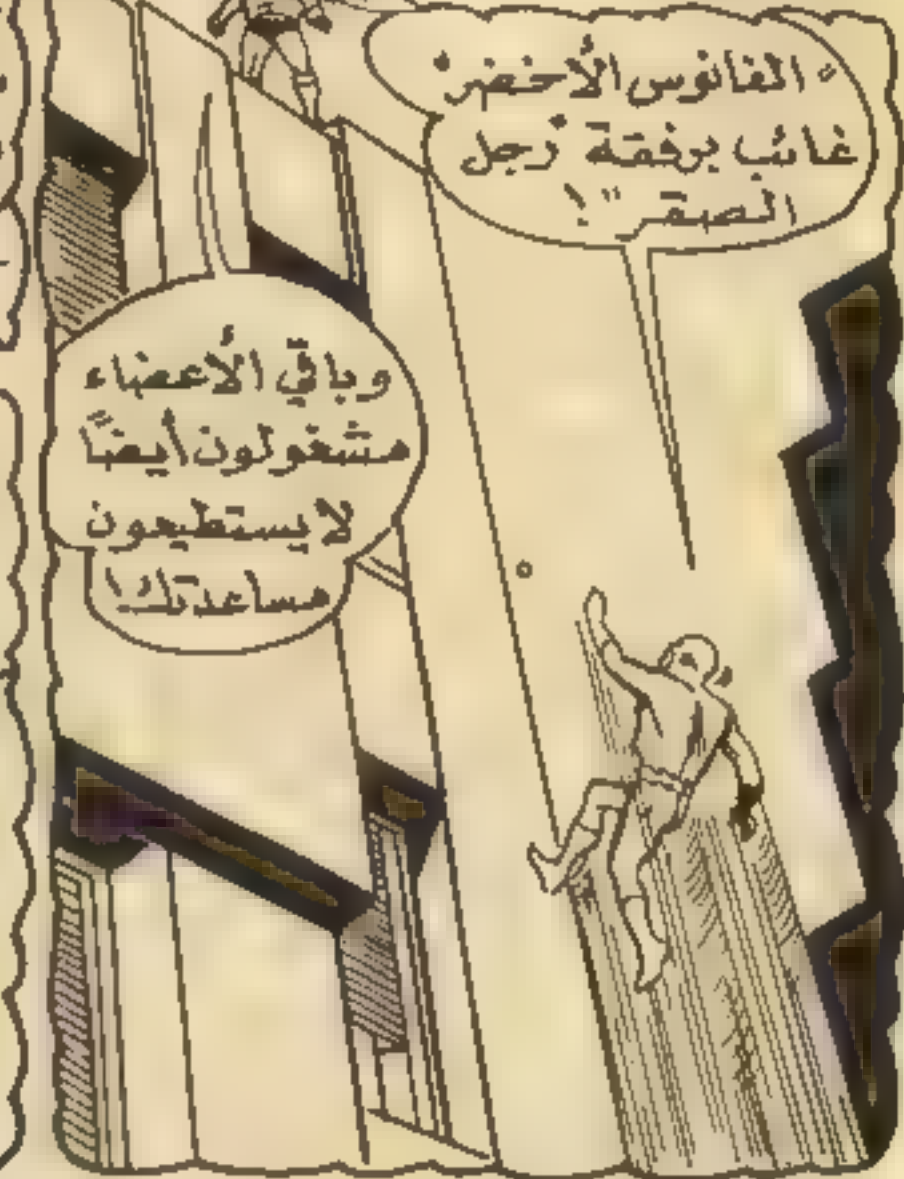 "الفانوس الأخضر"
غائب برفقة "رجل
الصقر"!
وباقي الأعضاء
مشغولون أيضًا
لا يستطيعون
مساعدتك!